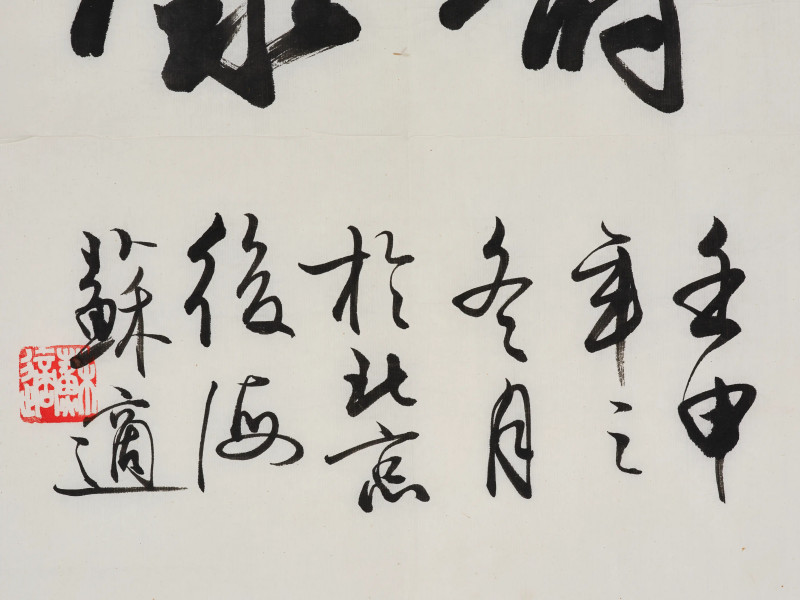 壬申
年之
冬月
於北京
後海
蘇適